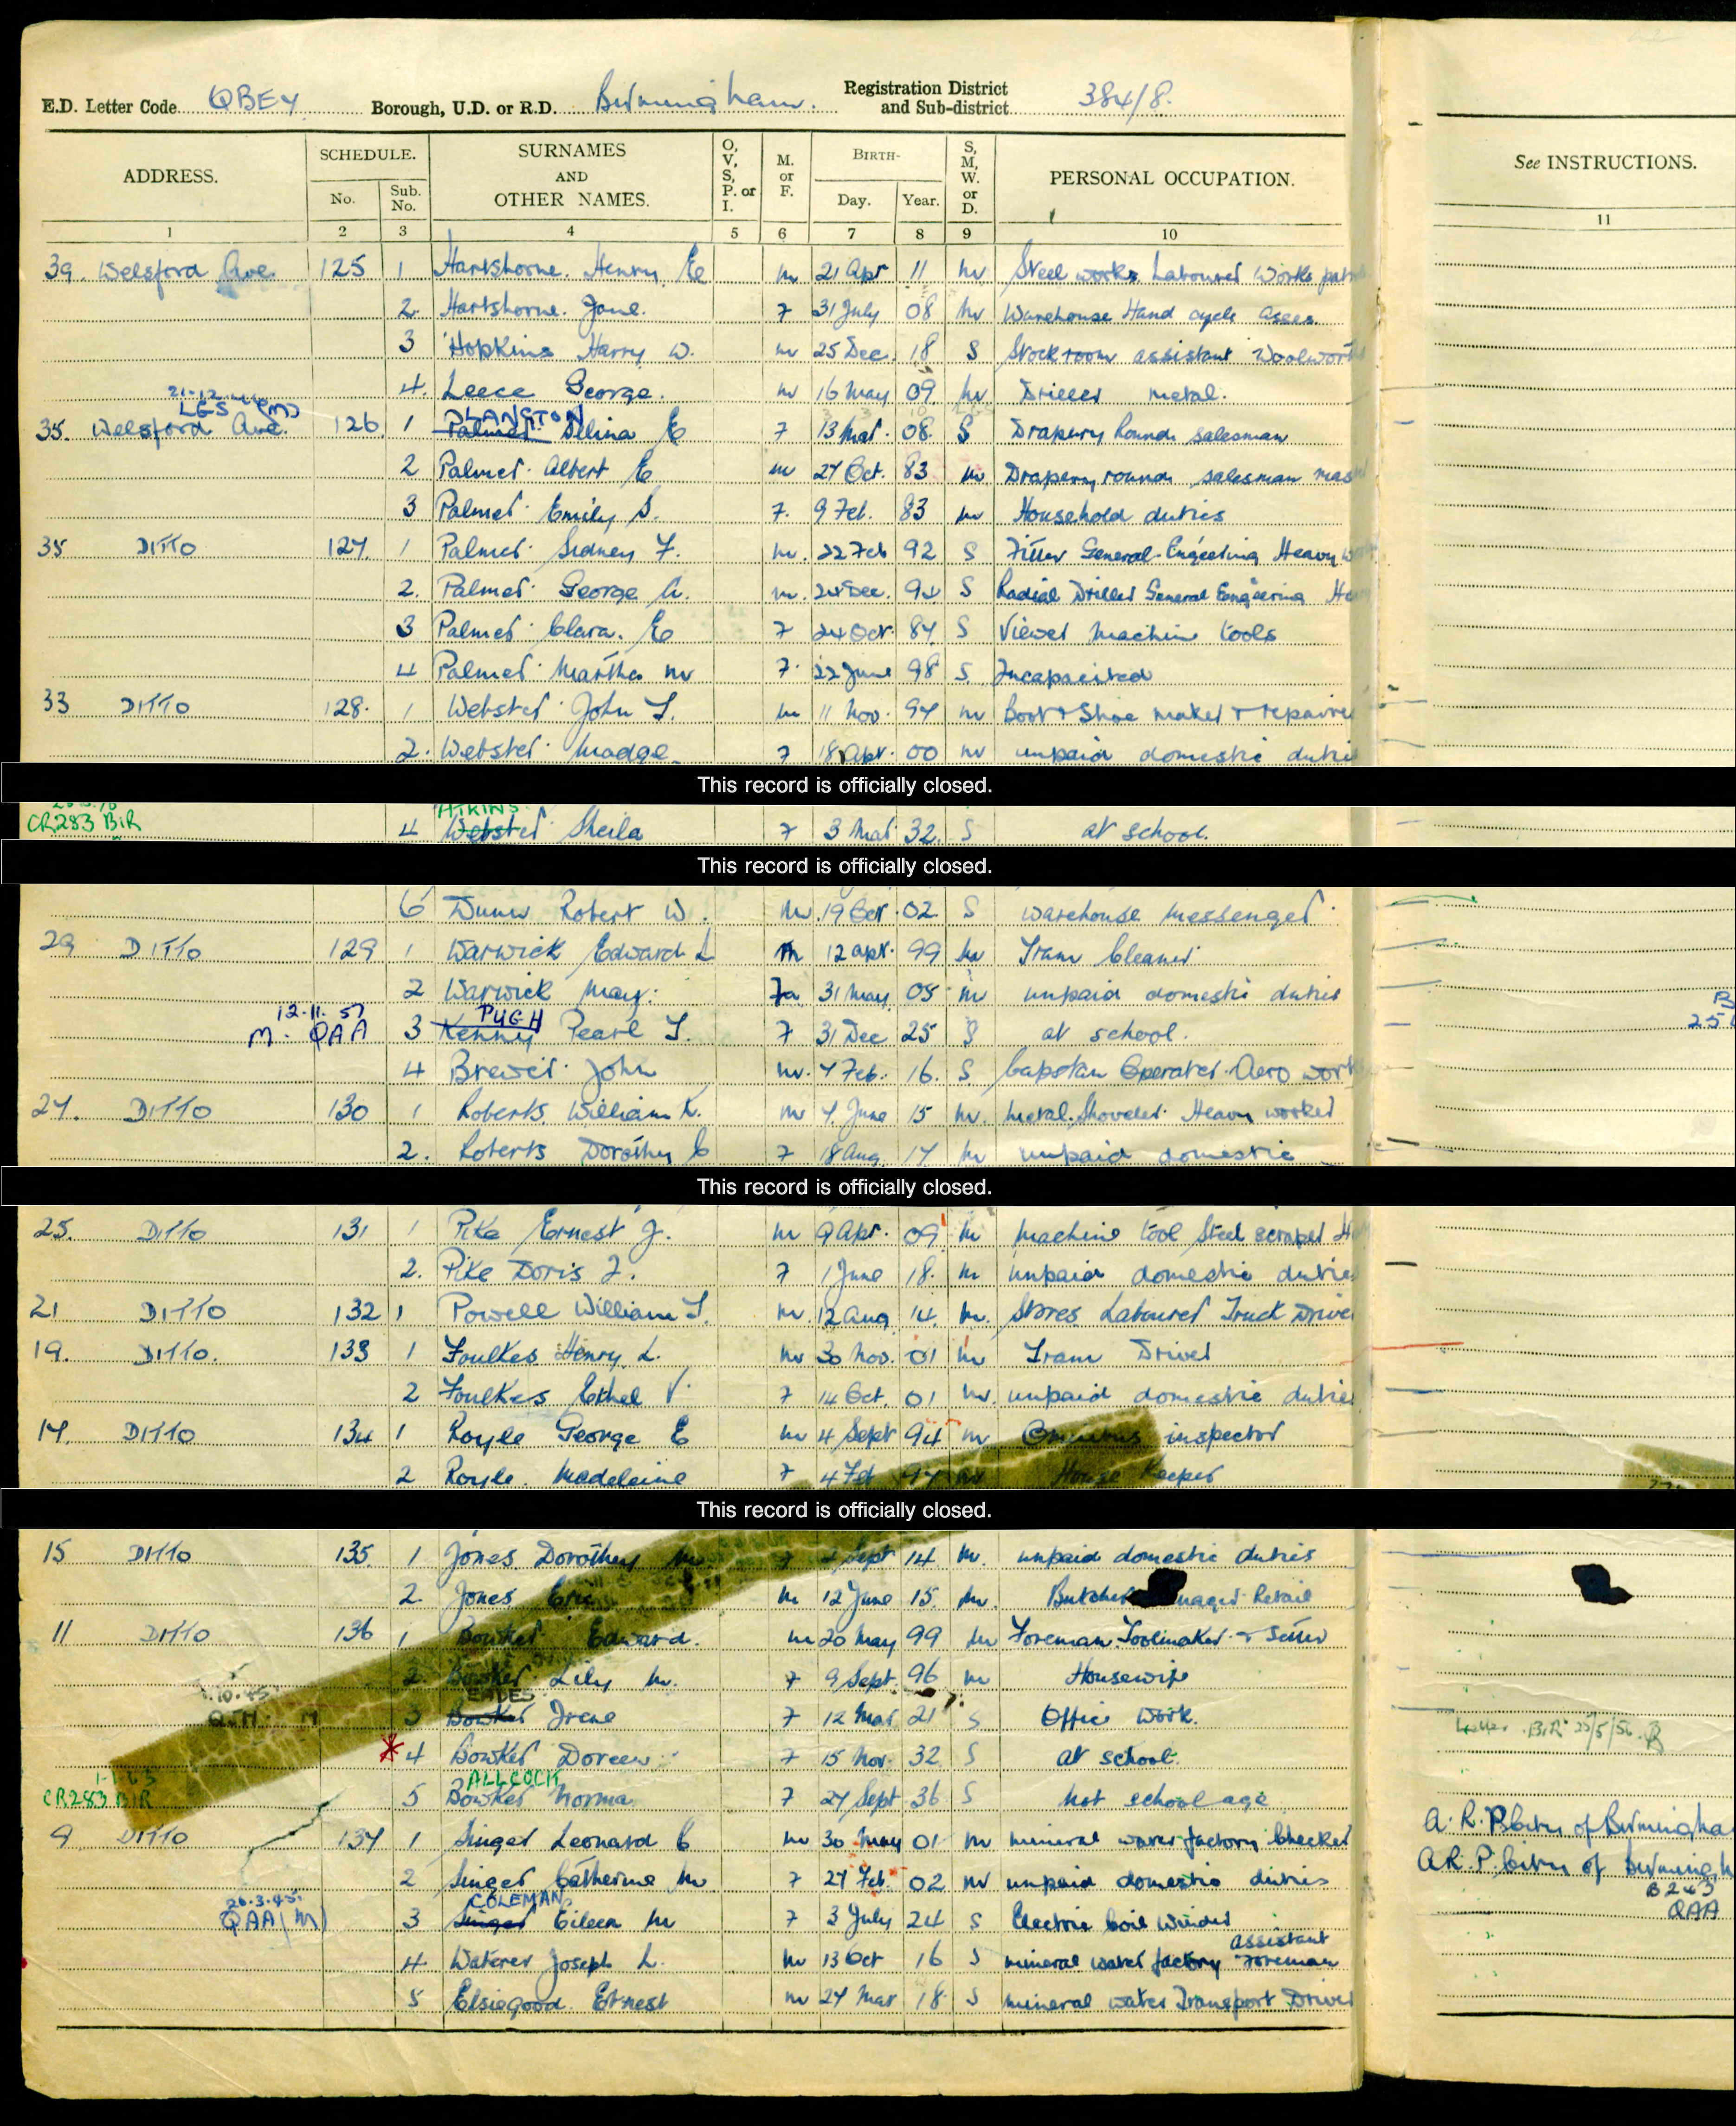 E.D. Letter Code QBEY Borough, U.D. or R.D. Birmingham. Registration District and Sub-district 384/8.
ADDRESS. SCHEDULE. No. Sub. No. SURNAMES AND OTHER NAMES. O, V, S, P. or I. M. or F. BIRTH- Day. Year. S, M, W. or D. PERSONAL OCCUPATION. See INSTRUCTIONS.
1 2 3 4 5 6 7 8 9 10 11
39. Welsford Ave. 125 1 Hartshorne. Henry E m 21 Apr 11 M Steel works Labourer Works
2. Hartshorne. Jane. F 31 July 08 M Warehouse Hand cycle asses.
3 Hopkins Harry W. m 25 Dec. 18 S Stockroom assistant Woolwort
4. Leece George. m 16 May 09 M Driller metal.
21-12 LGS (M) LANGTON
35. Welsford Ave. 126 1 Palmer Sellina E F 13 Mar. 08. S Drapery Round salesman
2 Palmer Albert E m 27 Oct. 83 M Drapery round salesman mas
3 Palmer Emily S. F. 9 Feb. 83 M Household duties
35 DITTO 127. 1 Palmer Sidney F. m. 22 Feb 92 S Fitter General Engeering Heavy w
2. Palmer George A. m. 24 Dec. 94 S Radial Driller General Engeering He
3 Palmer Clara. E F 24 Oct. 87 S Viewer Machine tools
4 Palmer Martha M F. 22 June 98 S. Incapacited
33 DITTO 128. 1 Webster John T. m 11 Nov. 97 M Boot & Shoe maker & repairer
2. Webster Madge F 18 Apr. 00 M unpaid domestic dutie
This record is officially closed.
ATKINS
CR283 BIR 4 Webster Sheila F 3 Mar 32. S at school.
This record is officially closed.
6 Dunn Robert W. M 19 Oct 02 S warehouse messenger.
29 DITTO 129 1 Warwick Edward L m 12 Apr. 99 M Tram Cleaner
2 Warwick May. F 31 May 05 M unpaid domestic duties
12.11.57 PUGH
M. QAA 3 Kenny Pearl T. F 31 Dec 25 S at school.
4 Brewer John m. 7 Feb. 16. S Capstan Operater Aero work
27. DITTO 130 1 Roberts William K. m 7. June 15 M. metal Shoveler Heavy worker
2. Roberts Dorothy E F 18 Aug. 17 M unpaid domestic
This record is officially closed.
25. DITTO 131 1 Pike Ernest J. m 9 Apr. 09 M machine tool Steel scraper H
2. Pike Doris F. F 1 June 18. M unpaid domestic dutie
21 DITTO 132 1 Powell William T. m. 12 Aug 14. M. Stores Labourer Truck Drive
19. DITTO. 133 1 Foulkes Henry L. m 30 Nov. 01 M Tram Driver
2 Foulkes Ethel V. F 14 Oct. 01 M. unpaid domestic dutie
17. DITTO 134 1 Royle George E m 4 Sept 94 M Omnibus inspector
2 Royle. Madeleine F 4 Feb 97 M House Keeper
This record is officially closed.
15 DITTO 135. 1 Jones Dorothy M. F Sept 14. M. unpaid domestic duties
2. Jones Eric m 12 June 15. M. Butcher nager Retail
11 DITTO 136 1 Bowker Edward. m 20 May 99 M Foreman Toolmaker & Setter
2 Bowker Lily M. F 9 Sept. 96 M Housewife
EADES
3 Bowker Irene F 12 Mar 21 S Office work.
4 Bowker Doreen F 15 Nov. 32 S at school.
Letter BIR 25/5/56
1-1-63 ALLCOCK
CR283 BIR 5 Bowker Norma. F 27 Sept 36 S not school age
9 DITTO 137 1 Singer Leonard C m 30 May 01 M mineral water factory Checker A.R.P. City of Birmingha
2 Singer Catherine M F 27 Feb. 02 M unpaid domestic duties A.R.P. City of Birmingh
26.3.45. COLEMAN B243
QAA (M) 3 Singer Eileen M F 3 July 24 S Electric Coil Winder QAA
assistant
4. Waterer Joseph L. m 13 Oct 16 S mineral water factory Foreman
5 Elsiegood. Ernest m 27 Mar 18 S mineral water Transport Driver